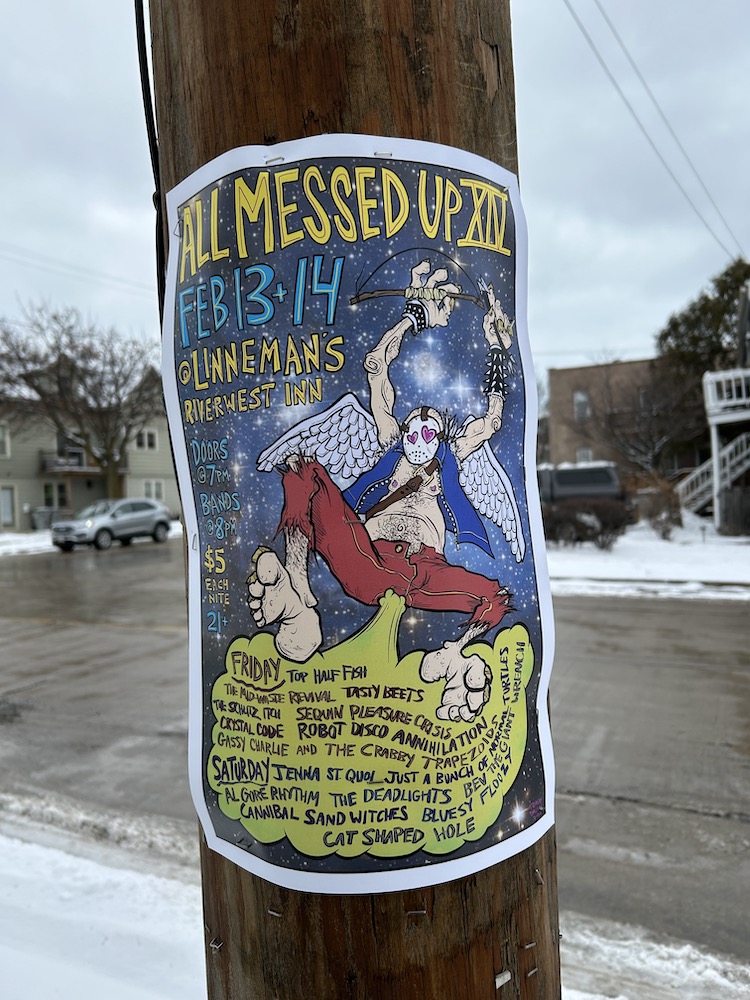 ALL MESSED UP XIV
FEB 13+14
@LINNEMAN'S
RIVERWEST INN
DOORS
@7PM
BANDS
@8PM
$5
EACH
NITE
21+
FRIDAY TOP HALF FISH
THE MID-WASTE REVIVAL TASTY BEETS
THE SCHLITZ ITCH SEQUIN PLEASURE CRISIS
CRYSTAL CODE ROBOT DISCO ANNIHILATION
GASSY CHARLIE AND THE CRABBY TRAPEZOIDS
SATURDAY JENNA ST. QUOI JUST A BUNCH OF NORMAL TURTLES
AL GORE RHYTHM THE DEADLIGHTS BEN THE GIANT WRENCH
CANNIBAL SANDWITCHES BLUESY FLOOZY
CAT SHAPED HOLE